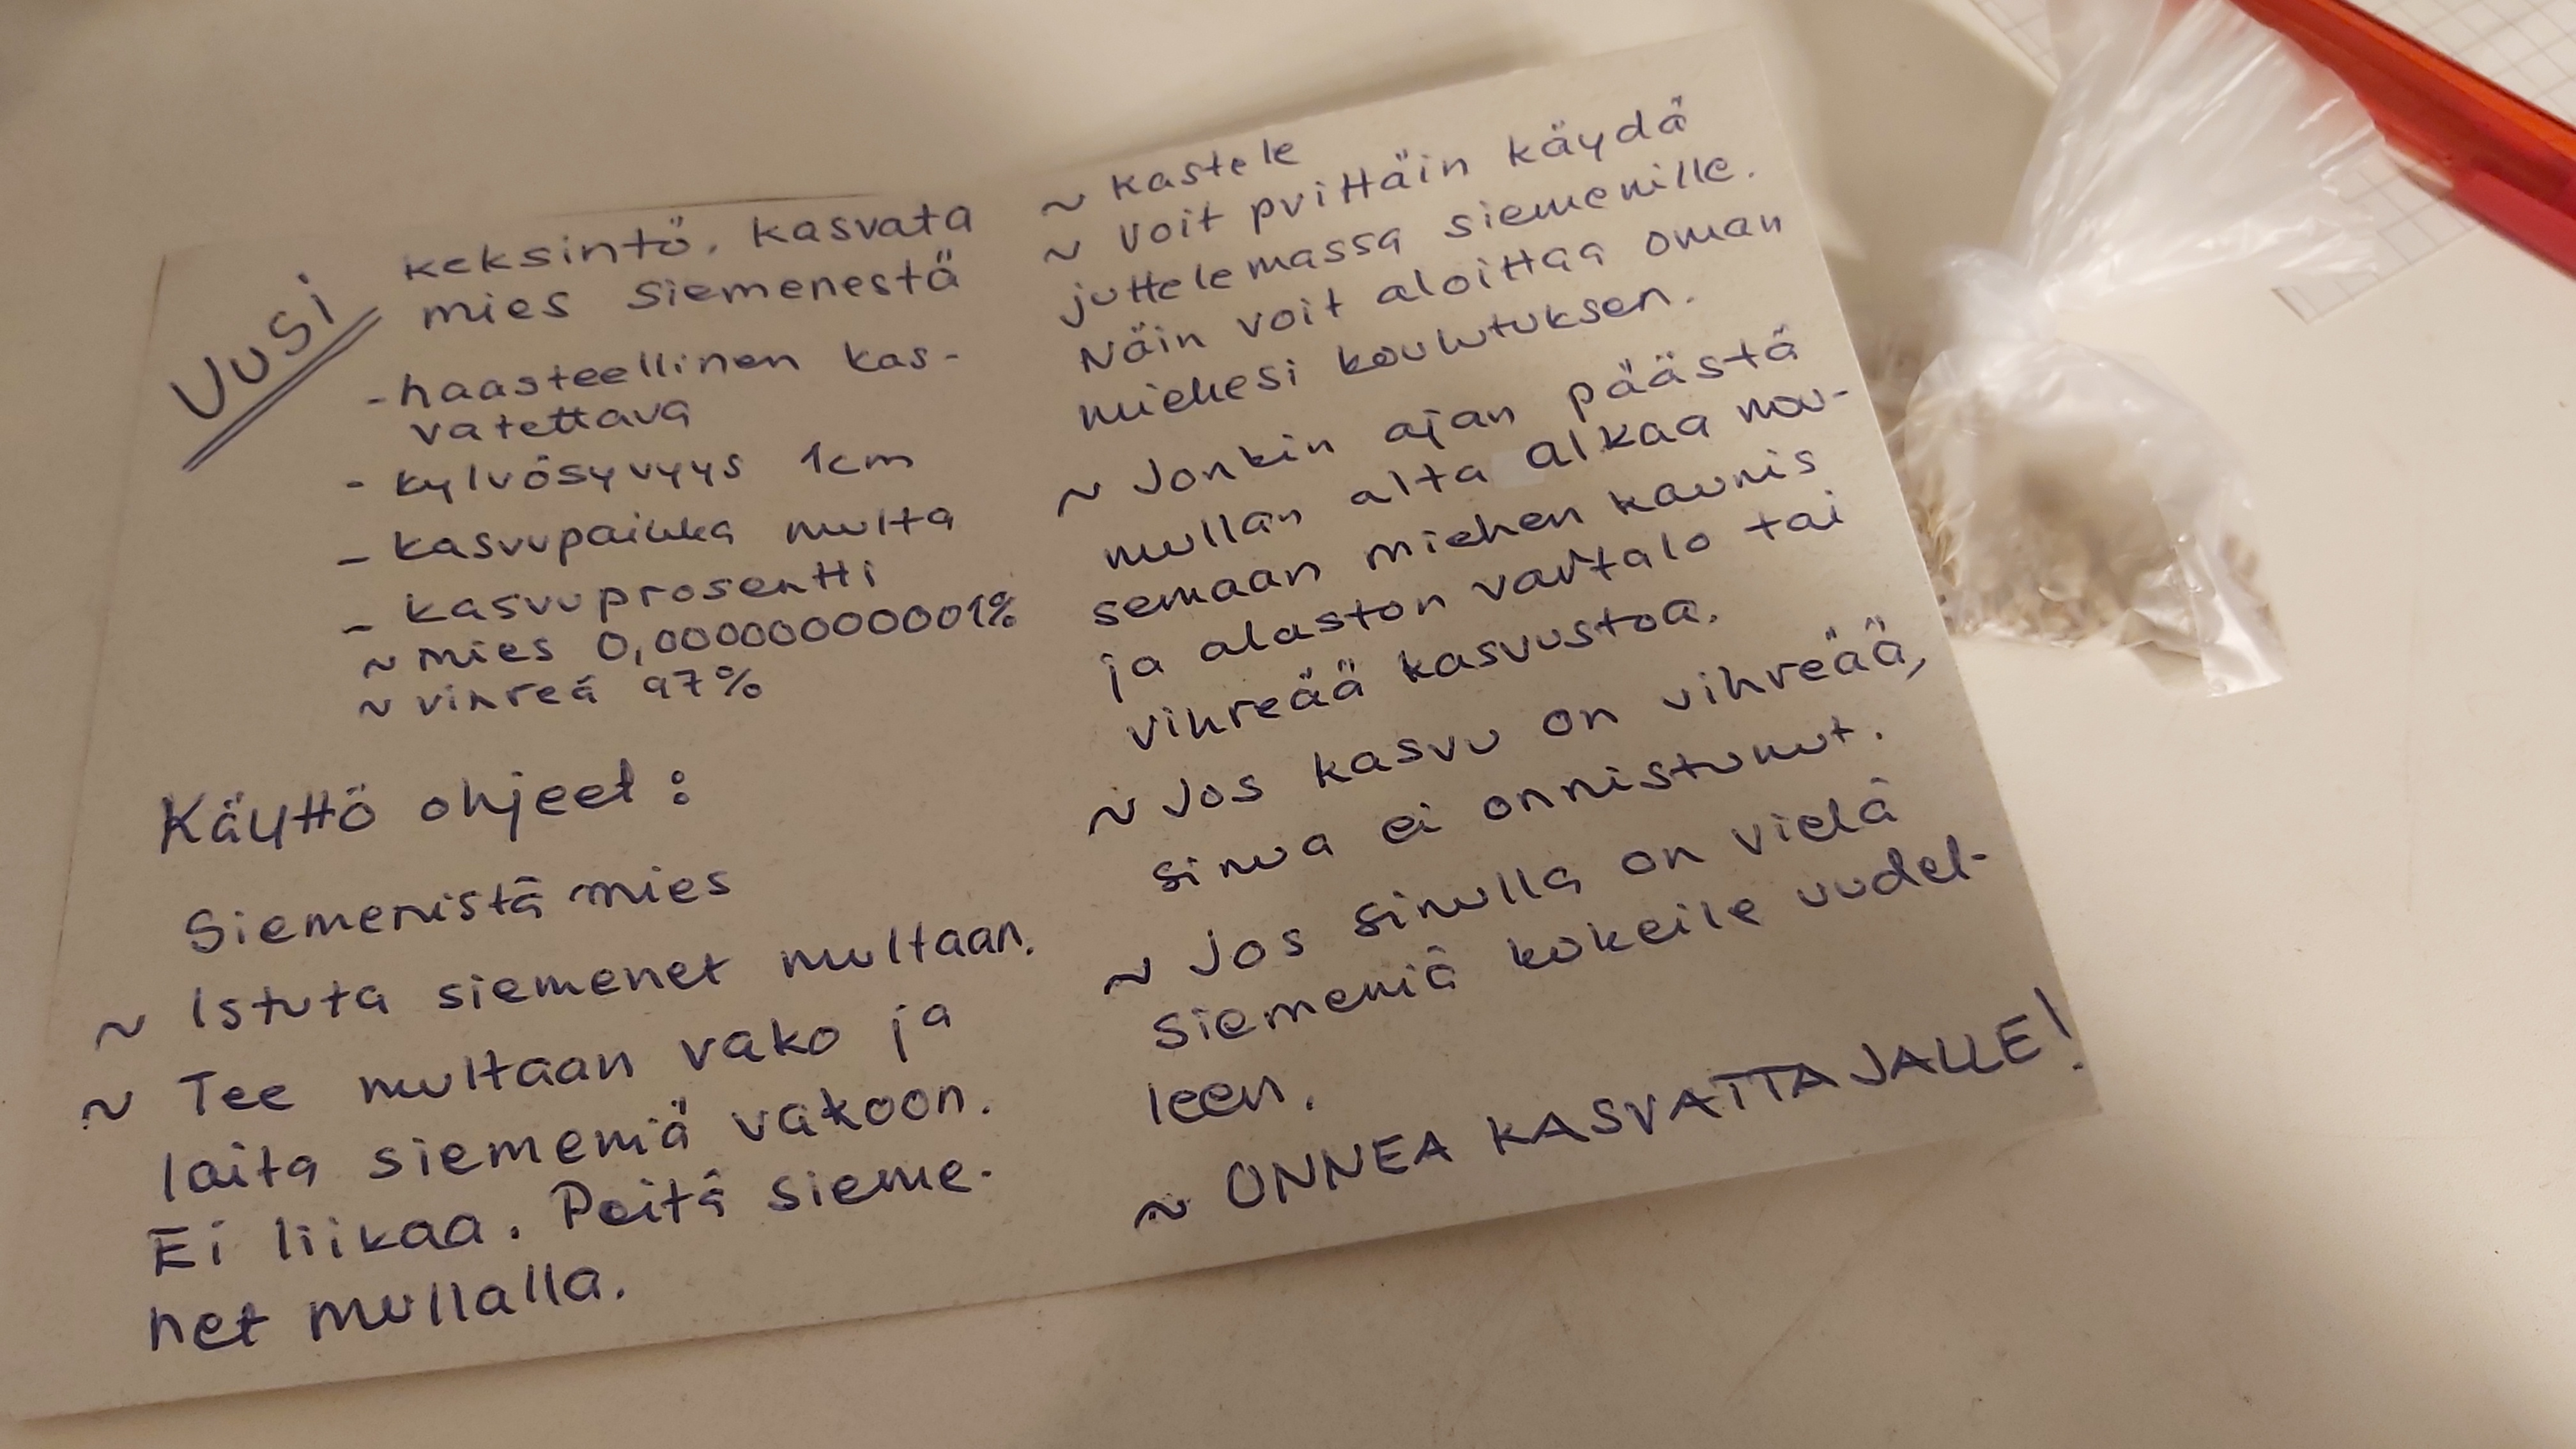 UUSI
keksintö, kasvata
mies siemenestä
- haasteellinen kas-
vatettava
- kylvösyvyys 1cm
- kasvupaikka multa
- kasvuprosentti
~ mies 0,00000000001%
~ vihreä 97%
Käyttö ohjeet :
Siemenistä mies
~ Istuta siemenet multaan.
~ Tee multaan vako ja
laita siemeniä vakoon.
Ei liikaa. Peitä sieme-
net mullalla.
~ kastele
~ Voit pvittäin käydä
juttelemassa siemenille.
Näin voit aloittaa oman
miehesi koulutuksen.
~ Jonkin ajan päästä
mullan alta alkaa nou-
semaan miehen kaunis
ja alaston vartalo tai
vihreää kasvustoa.
~ Jos kasvu on vihreää,
sinua ei onnistunut.
~ Jos sinulla on vielä
siemeniä kokeile uudel-
leen.
~ ONNEA KASVATTAJALLE!